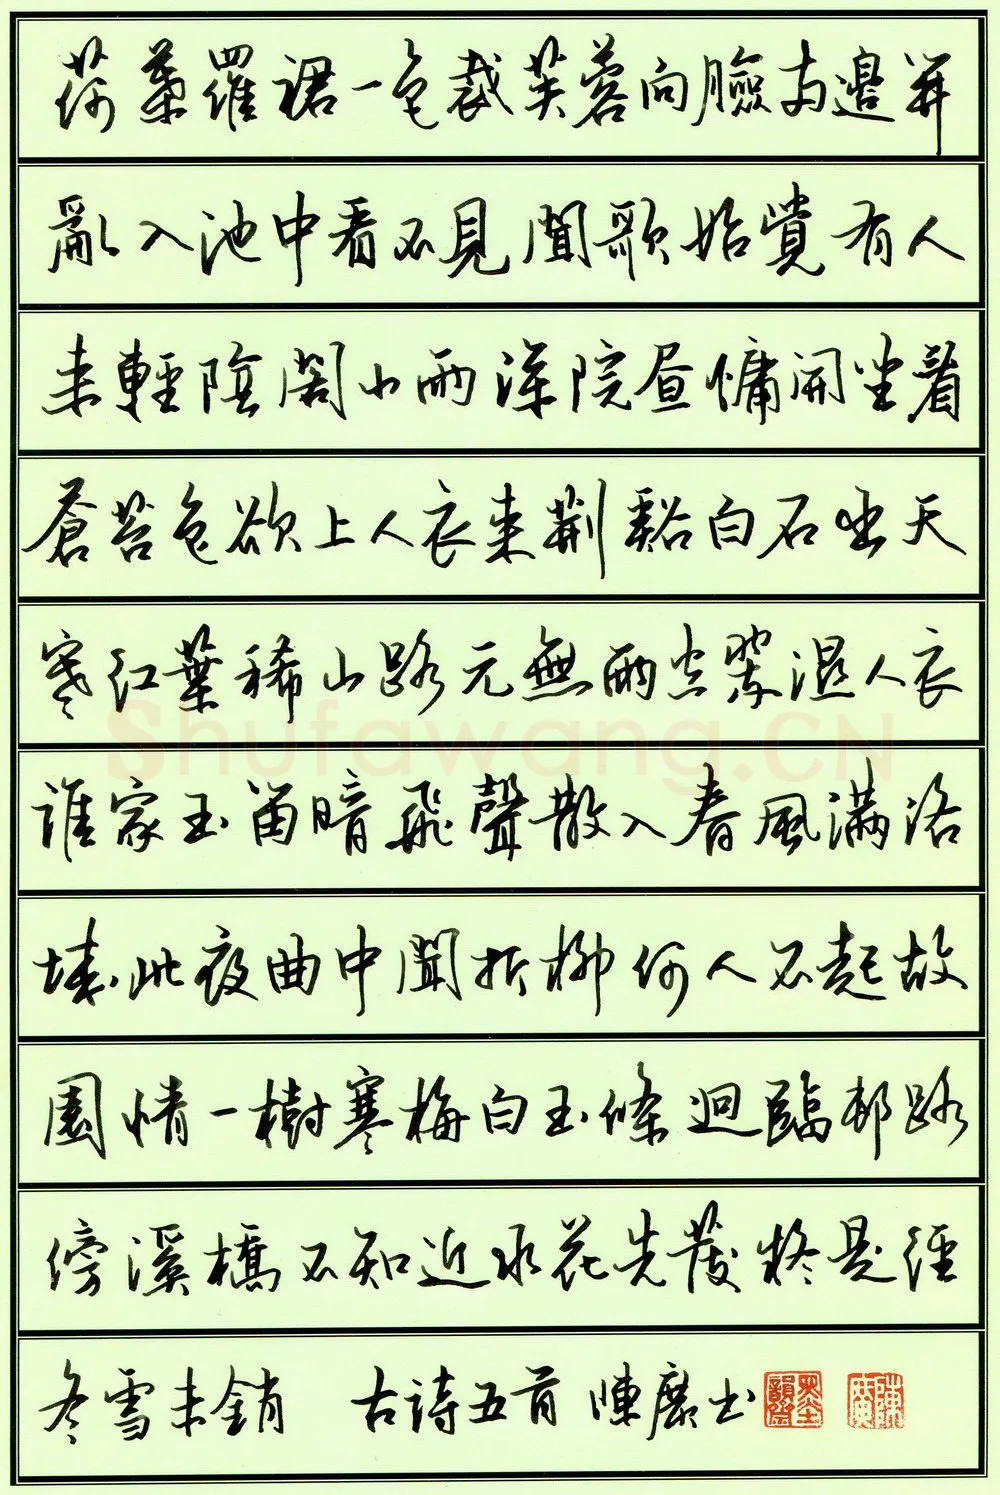 荷葉羅裙一色裁芙蓉向臉兩邊開
亂入池中看不見聞歌始覺有人
来輕陰閣小雨深院晝慵開坐看
蒼苔色欲上人衣來荆谿白石出天
寒红葉稀山路元無雨空翠濕人衣
誰家玉笛暗飛聲散入春風满洛
城此夜曲中聞折柳何人不起故
園情一樹寒梅白玉條迴臨邨路
傍溪橋不知近水花先發終是經
冬雪未銷 古詩五首 陳 书
Shufawang.CN